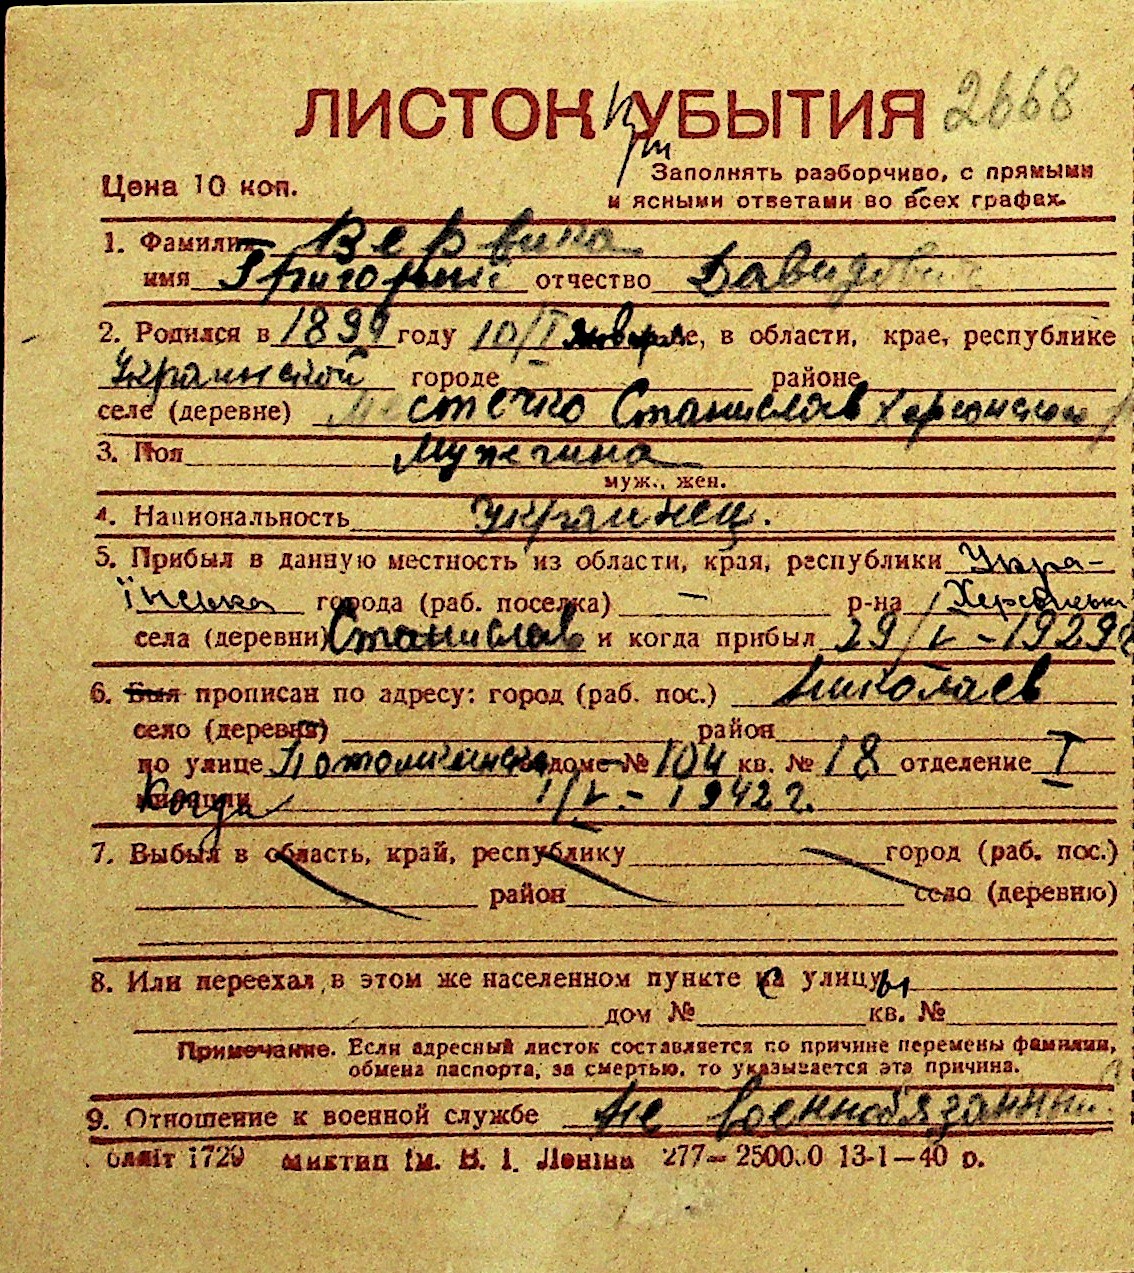 ЛИСТОК УБЫТИЯ 2668
Заполнять разборчиво, с прямыми
Цена 10 коп.
и ясными ответами во всех графах.
1. Фамилия Вервина
имя Григорий отчество Давидович
2. Родился в 1899 году 10/I января, в области, крае, республике
Украинской городе районе
селе (деревне) местечко Станислав Херсонской
3. Пол Мужчина
муж., жен.
4. Национальность украинец.
5. Прибыл в данную местность из области, края, республики Укра-
їнська города (раб. поселка) – р-на Херсонська
села (деревни) Станислав и когда прибыл 29/V – 1929
6. Был прописан по адресу: город (раб. пос.) Николаев
село (деревня) район
по улице доме № 104 кв. № 18 отделение I
милиции Когда 1/V – 1942 г.
7. Выбыл в область, край, республику город (раб. пос.)
район село (деревню)
8. Или переехал в этом же населенном пункте с улицы
дом № кв. №
Примечание. Если адресный листок составляется по причине перемены фамилии,
обмена паспорта, за смертью, то указывается эта причина.
9. Отношение к военной службе не военнобязанный.
олліт 1729 миктип ім. В. І. Леніна 277– 250000 13-1–40 р.